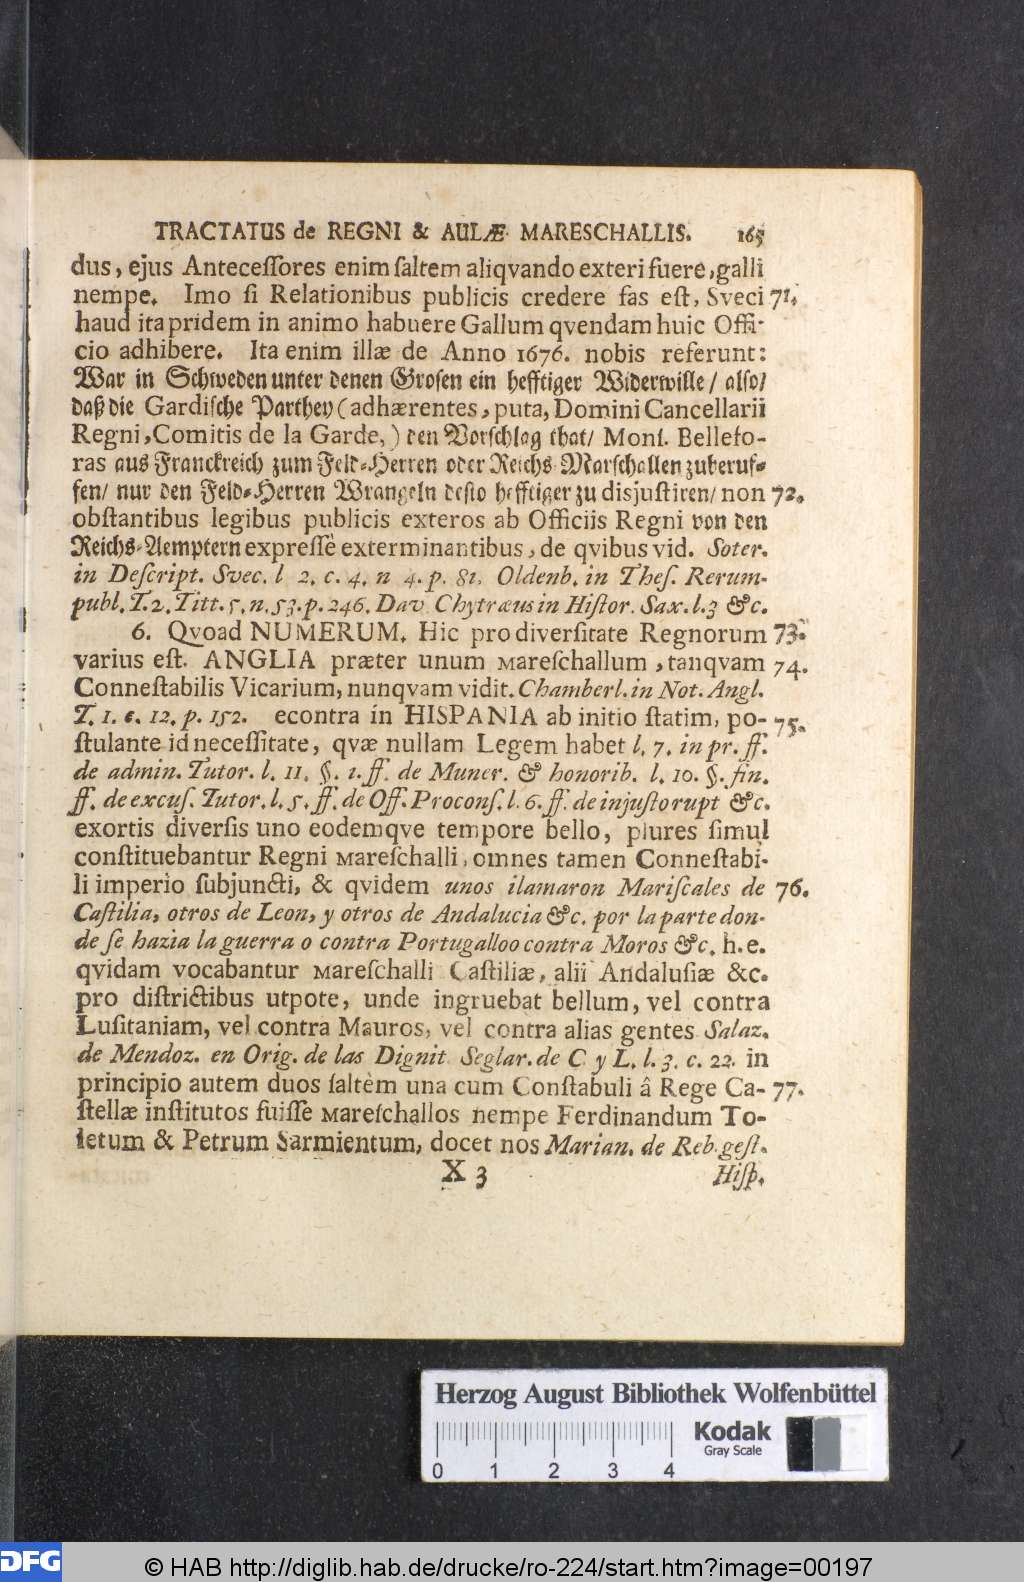 TRACTATUS de REGNI & AULÆ MARESCHALLIS. 165
dus, ejus Anteceſſores enim ſaltem aliqvando exteri fuere, galli
nempe. Imo ſi Relationibus publicis credere fas eſt, Sveci 71.
haud ita pridem in animo habuere Gallum qvendam huic Offi-
cio adhibere. Ita enim illæ de Anno 1676. nobis referunt:
War in Schweden unter denen Groſen ein hefftiger Widerwille / alſo /
daß die Gardiſche Parthey (adhærentes, puta, Domini Cancellarii
Regni, Comitis de la Garde,) den Vorſchlag that / Monſ. Bellefo-
ras aus Franckreich zum Feld-Herren oder Reichs Marſchallen zuberuf-
fen / nur den Feld-Herren Wrangeln deſto hefftiger zu disjuſtiren / non 72.
obſtantibus legibus publicis exteros ab Officiis Regni von den
Reichs-Aemptern expreſſè exterminantibus, de qvibus vid. Soter.
in Deſcript. Svec. l 2. c. 4. n 4. p. 81. Oldenb. in Theſ. Rerum-
publ. T. 2. Titt. 5. n. 53. p. 246. Dav Chytræus in Hiſtor. Sax. l. 3 &c.
6. Qvoad NUMERUM. Hic pro diverſitate Regnorum 73.
varius eſt. ANGLIA præter unum Mareſchallum, tanqvam 74.
Conneſtabilis Vicarium, nunqvam vidit. Chamberl. in Not. Angl.
T. 1. c. 12. p. 152. econtra in HISPANIA ab initio ſtatim, po- 75.
ſtulante id neceſſitate, qvæ nullam Legem habet l. 7. in pr. ff.
de admin. Tutor. l. 11. §. 1. ff. de Muner. & honorib. l. 10. §. fin.
ff. de excuſ. Tutor. l. 5. ff. de Off. Proconſ. l. 6. ff. de injuſto rupt &c.
exortis diverſis uno eodemqve tempore bello, plures ſimul
conſtituebantur Regni Mareſchalli, omnes tamen Conneſtabi-
li imperio ſubjuncti, & qvidem unos ilamaron Mariſcales de 76.
Caſtilia, otros de Leon, y otros de Andalucia &c. por la parte don-
de ſe hazia la guerra o contra Portugallo o contra Moros &c. h. e.
qvidam vocabantur Mareſchalli Caſtiliæ, alii Andaluſiæ &c.
pro diſtrictibus utpote, unde ingruebat bellum, vel contra
Luſitaniam, vel contra Mauros, vel contra alias gentes Salaz.
de Mendoz. en Orig. de las Dignit Seglar. de C y L. l. 3. c. 22. in
principio autem duos ſaltèm una cum Conſtabuli â Rege Ca- 77.
ſtellæ inſtitutos fuiſſe Mareſchallos nempe Ferdinandum To-
letum & Petrum Sarmientum, docet nos Marian. de Reb. geſt.
X 3 Hiſp.
Herzog August Bibliothek Wolfenbüttel
Kodak
Gray Scale
0 1 2 3 4
DFG © HAB http://diglib.hab.de/drucke/ro-224/start.htm?image=00197